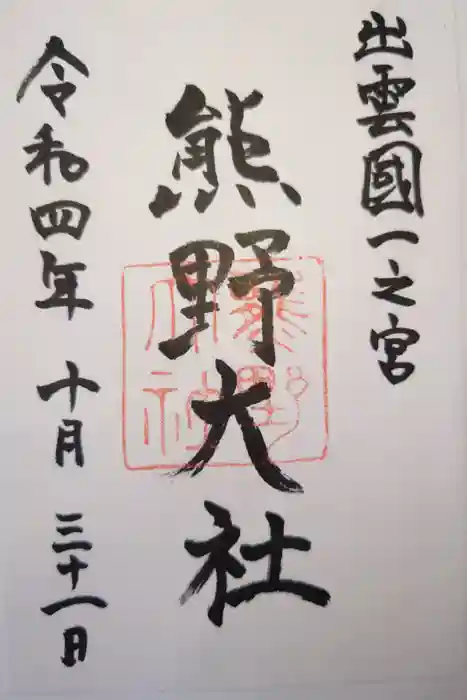 出雲國一之宮
熊野大社
熊野大社
令和四年 十月 三十一日